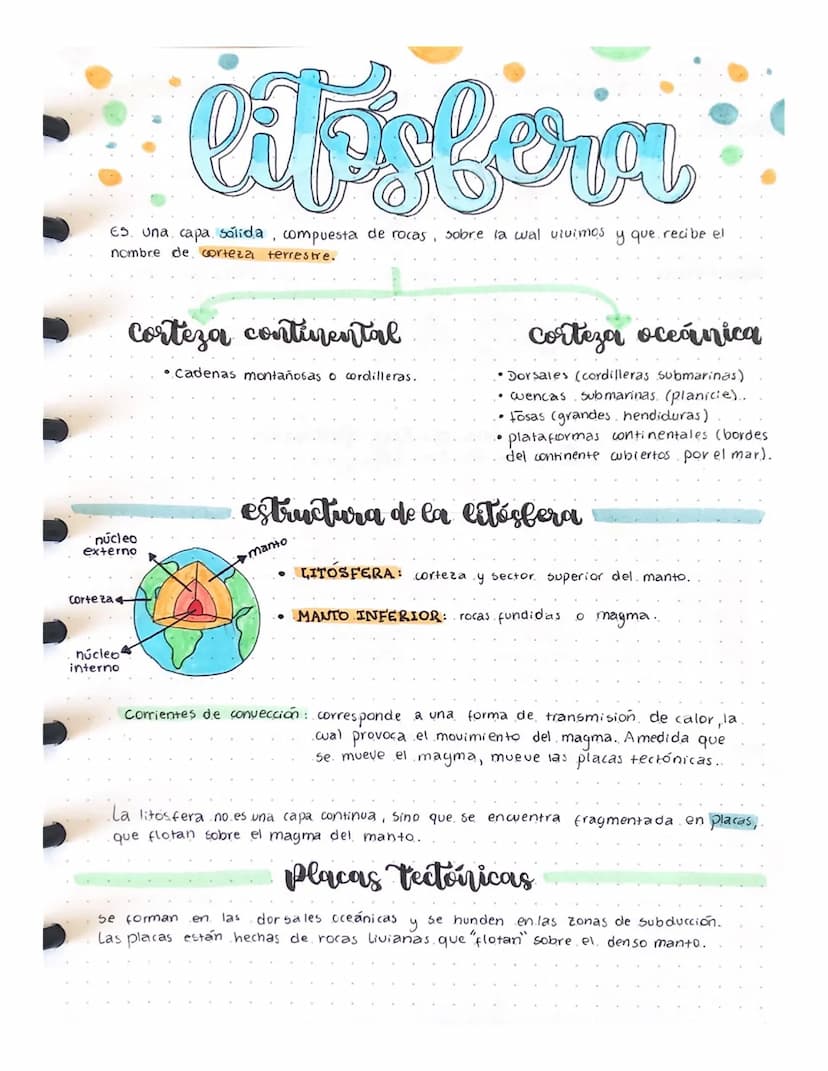 litósfera
Es una capa sólida, compuesta de rocas, sobre la cual vivimos y que recibe el
nombre de corteza terrestre.
Corteza continental
• Cadenas montañosas o cordilleras.
Corteza oceánica
• Dorsales (cordilleras submarinas)
• cuencas submarinas (planicie).
• fosas (grandes hendiduras)
• plataformas continentales (bordes
del continente cubiertos por el mar).
estructura de la litósfera
núcleo
externo
manto
corteza
núcleo
interno
• LITÓSFERA: corteza y sector superior del manto.
• MANTO INFERIOR: rocas fundidas o magma.
Corrientes de convección: corresponde a una forma de transmisión de calor, la
cual provoca el movimiento del magma. A medida que
se mueve el magma, mueve las placas tectónicas.
La litósfera no es una capa continua, sino que se encuentra fragmentada en placas,
que flotan sobre el magma del manto.
Placas Tectónicas
se forman en las dorsales oceánicas y se hunden en las zonas de subducción.
Las placas están hechas de rocas livianas que "flotan" sobre el denso manto.